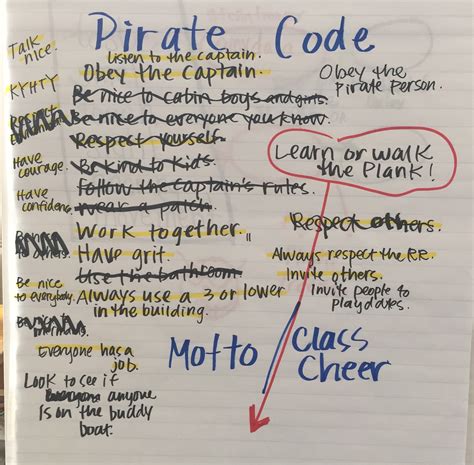 Pirate Code
Talk nice.
Listen to the captain.
Obey the captain.
Obey the pirate person.
KYHTY
Be nice to cabin boys and girls.
Be nice to everyone you know.
Respect yourself.
Learn or walk
the Plank!
Have courage.
Be kind to kids.
Follow the captain's rules.
Have confidence.
Wear a patch.
Respect others.
Work together.
others.
Have grit.
Always respect the RR.
Use the bathroom.
Invite others.
Be nice
to everybody.
Always use a 3 or lower
in the building.
Invite people to
playdates.
Motto
Class
Cheer
Everyone has a
job.
Look to see if
anyone
is on the buddy
boat.